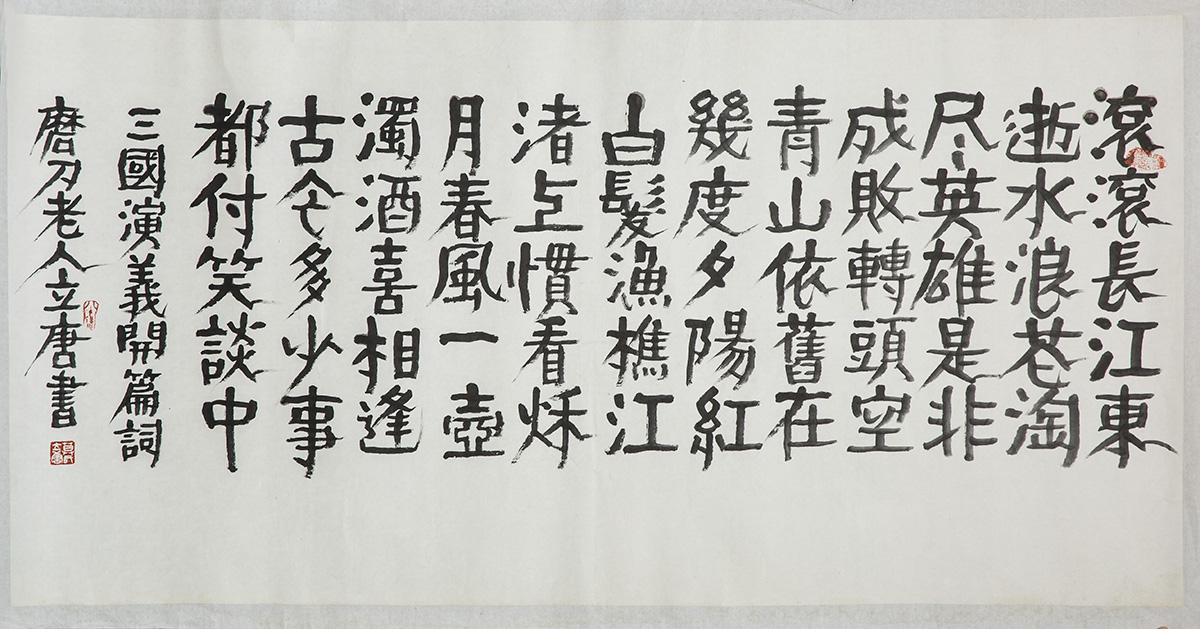 滾滾長江東
逝水浪花淘
尽英雄是非
成敗轉頭空
青山依舊在
幾度夕陽紅
白髮漁樵江
渚上慣看秌
月春風一壺
濁酒喜相逢
古今多少事
都付笑談中
三國演義開篇詞
磨刀老人立唐書